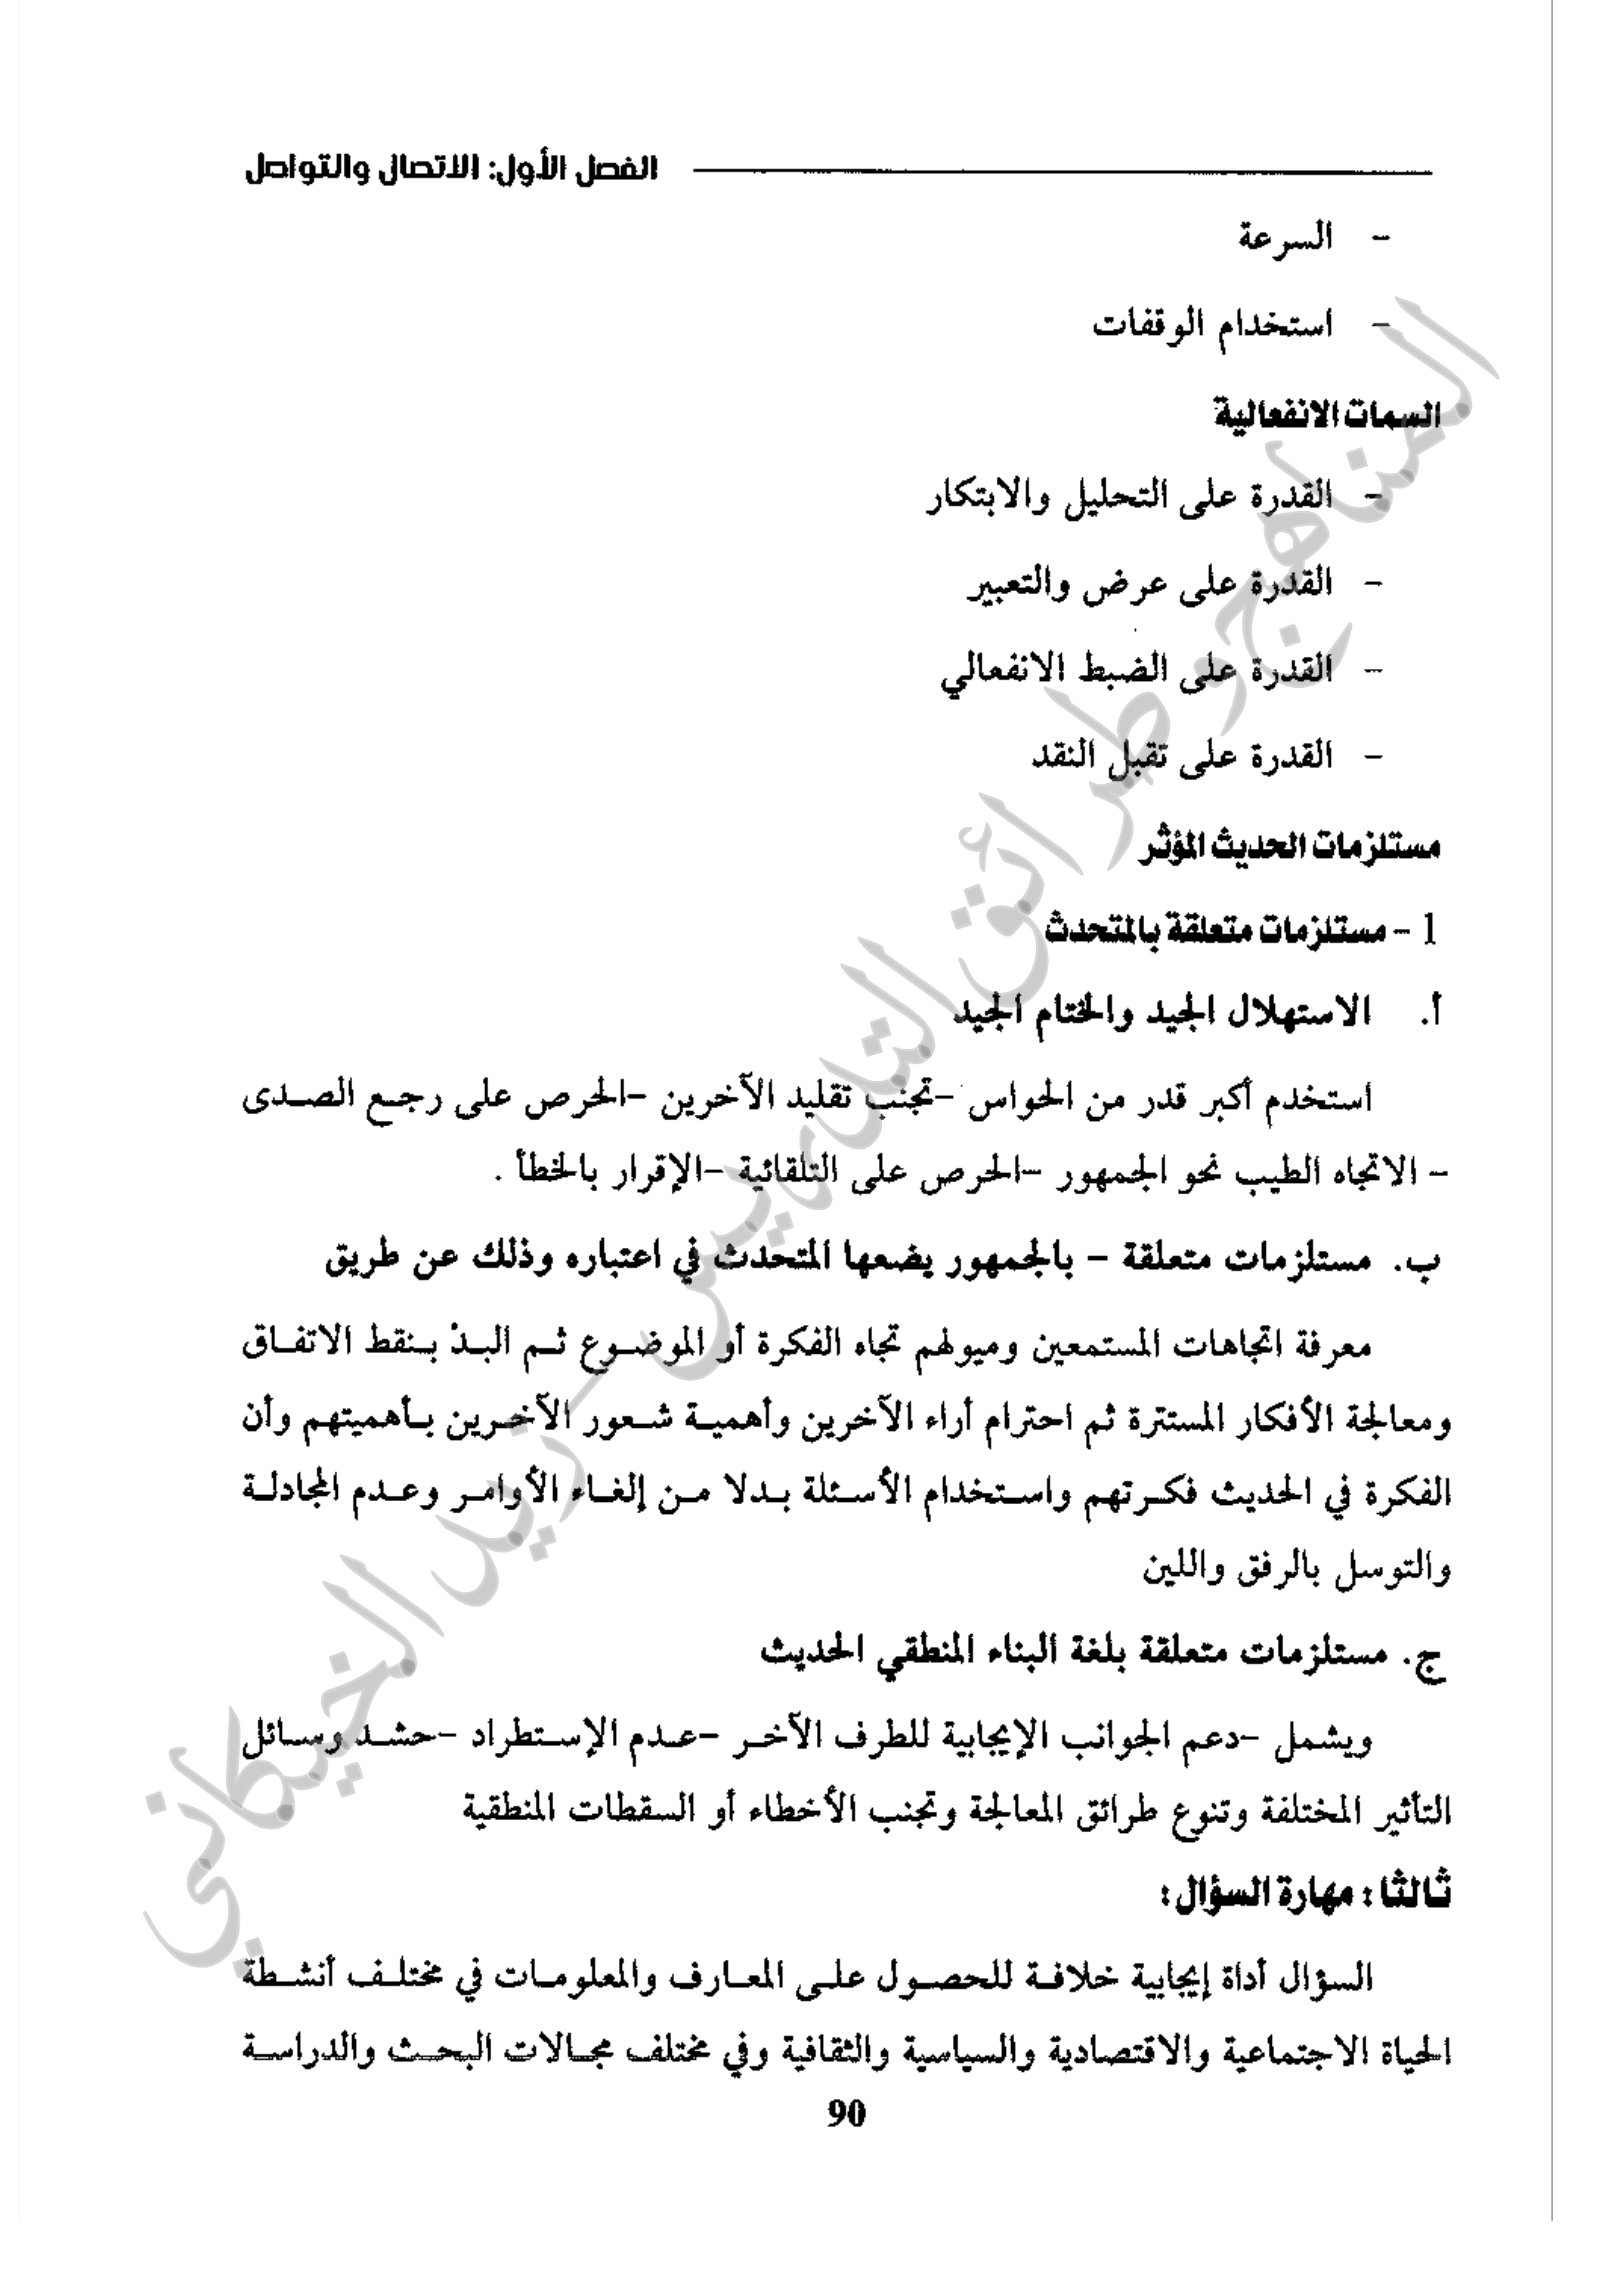 الفصل الأول: الاتصال والتواصل
- السرعة
- استخدام الوقفات
السمات الانفعالية
- القدرة على التحليل والابتكار
- القدرة على عرض والتعبير
- القدرة على الضبط الانفعالي
- القدرة على تقبل النقد
مستلزمات الحديث المؤثر
1 - مستلزمات متعلقة بالمتحدث
أ. الاستهلال الجيد والختام الجيد
استخدم أكبر قدر من الحواس -تجنب تقليد الآخرين -الحرص على رجع الصدى
- الاتجاه الطيب نحو الجمهور -الحرص على التلقائية -الإقرار بالخطأ .
ب. مستلزمات متعلقة - بالجمهور يضعها المتحدث في اعتباره وذلك عن طريق
معرفة اتجاهات المستمعين وميولهم تجاه الفكرة أو الموضوع ثم البدْ بنقط الاتفاق
ومعالجة الأفكار المستترة ثم احترام أراء الآخرين وأهمية شعور الآخرين بأهميتهم وأن
الفكرة في الحديث فكرتهم واستخدام الأسئلة بدلا من إلغاء الأوامر وعدم المجادلة
والتوسل بالرفق واللين
ج. مستلزمات متعلقة بلغة البناء المنطقي الحديث
ويشمل -دعم الجوانب الإيجابية للطرف الآخر -عدم الإستطراد -حشد وسائل
التأثير المختلفة وتنوع طرائق المعالجة وتجنب الأخطاء أو السقطات المنطقية
ثالثا : مهارة السؤال :
السؤال أداة إيجابية خلافة للحصول على المعارف والمعلومات في مختلف أنشطة
الحياة الاجتماعية والاقتصادية والسياسية والثقافية وفي مختلف مجالات البحث والدراسة
90
المناهج وطرائق التدريس - زيد الخيكاني